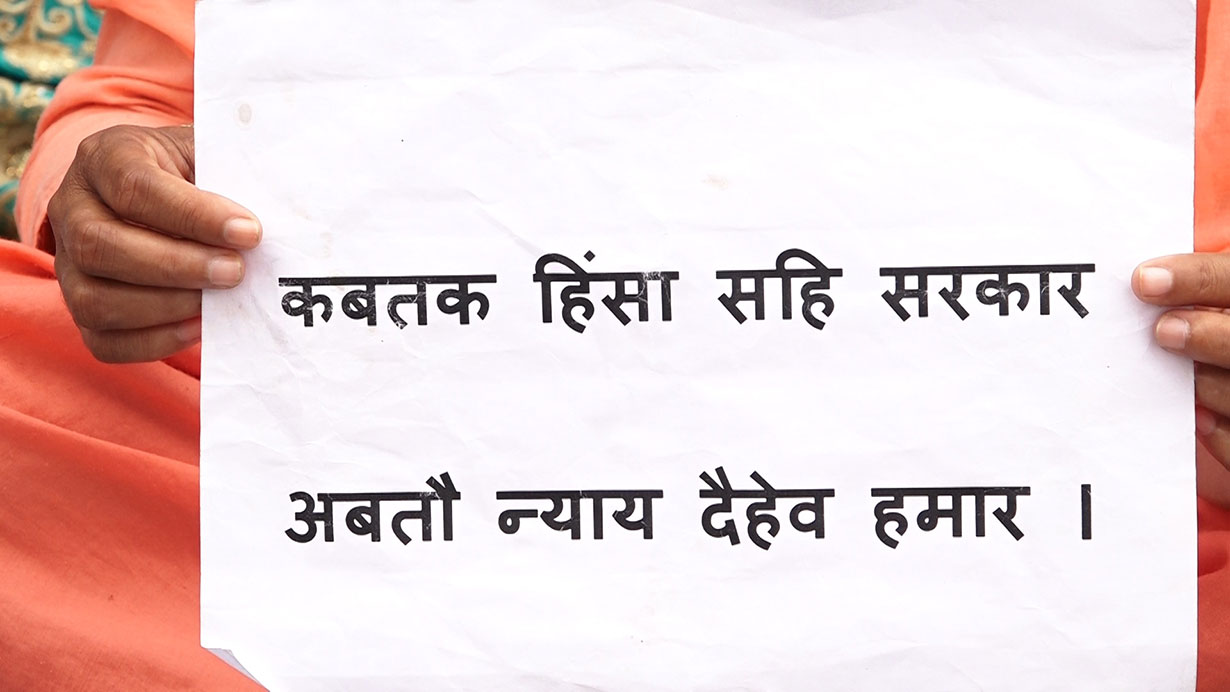 कबतक हिंसा सहि सरकार
अबतौ न्याय दैहेव हमार ।